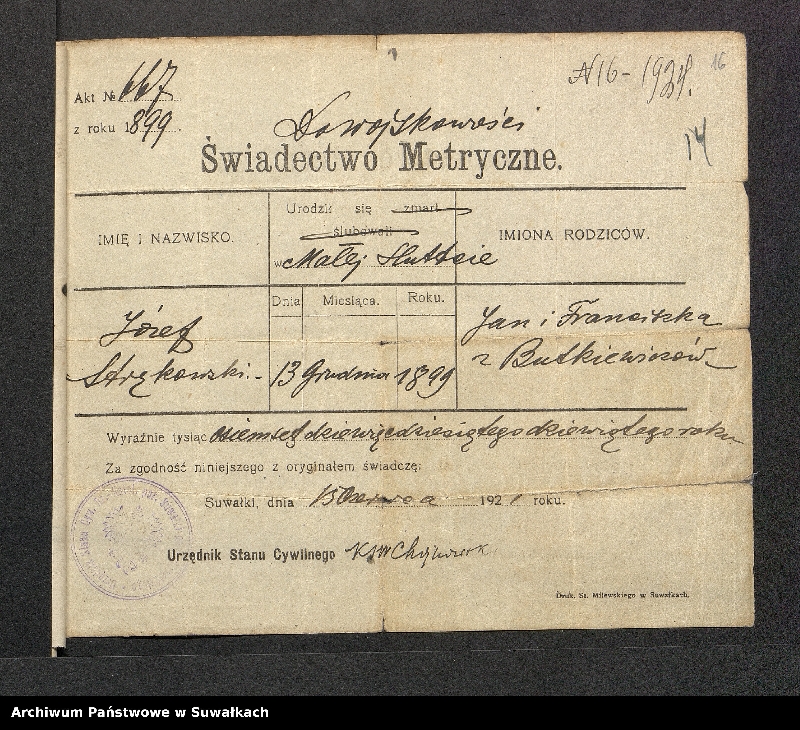 N16 - 1924. 16
Akt № 667
z roku 1899.
14
Do wojskowości
Świadectwo Metryczne.
IMIĘ I NAZWISKO.
Urodził się zmarł
ślubowali
w Małej Huttcie
IMIONA RODZICÓW.
Dnia Miesiąca. Roku.
Józef
Strękowski.
13 Grudnia 1899
Jan i Franciszka
z Butkiewiczów
Wyraźnie tysiąc osiemset dziewięćdziesiątego dziewiątego roku
Za zgodność niniejszego z oryginałem świadczę:
Suwałki, dnia 15 Czerwca 1921 roku.
Urzędnik Stanu Cywilnego
Druk. St. Milewskiego w Suwałkach.
Archiwum Państwowe w Suwałkach